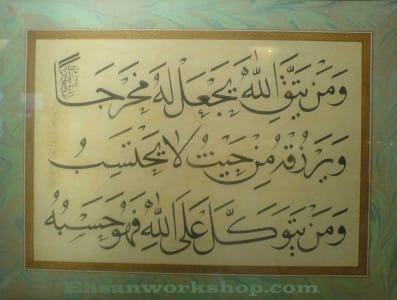 وَمَنْ يَتَّقِ اللّٰهَ يَجْعَلْ لَهُ مَخْرَجاً
وَيَرْزُقْهُ مِنْ حَيْثُ لَا يَحْتَسِبُ
وَمَنْ يَتَوَكَّلْ عَلَى اللّٰهِ فَهُوَ حَسْبُهُ
Ehsanworkshop.com